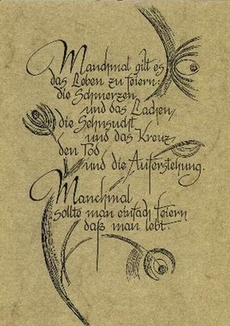 Manchmal gilt es
das Leben zu feiern:
die Schmerzen
und das Lachen,
die Sehnsucht
und das Kreuz
den Tod
und die Auferstehung.
Manchmal
sollte man einfach feiern
daß man lebt.